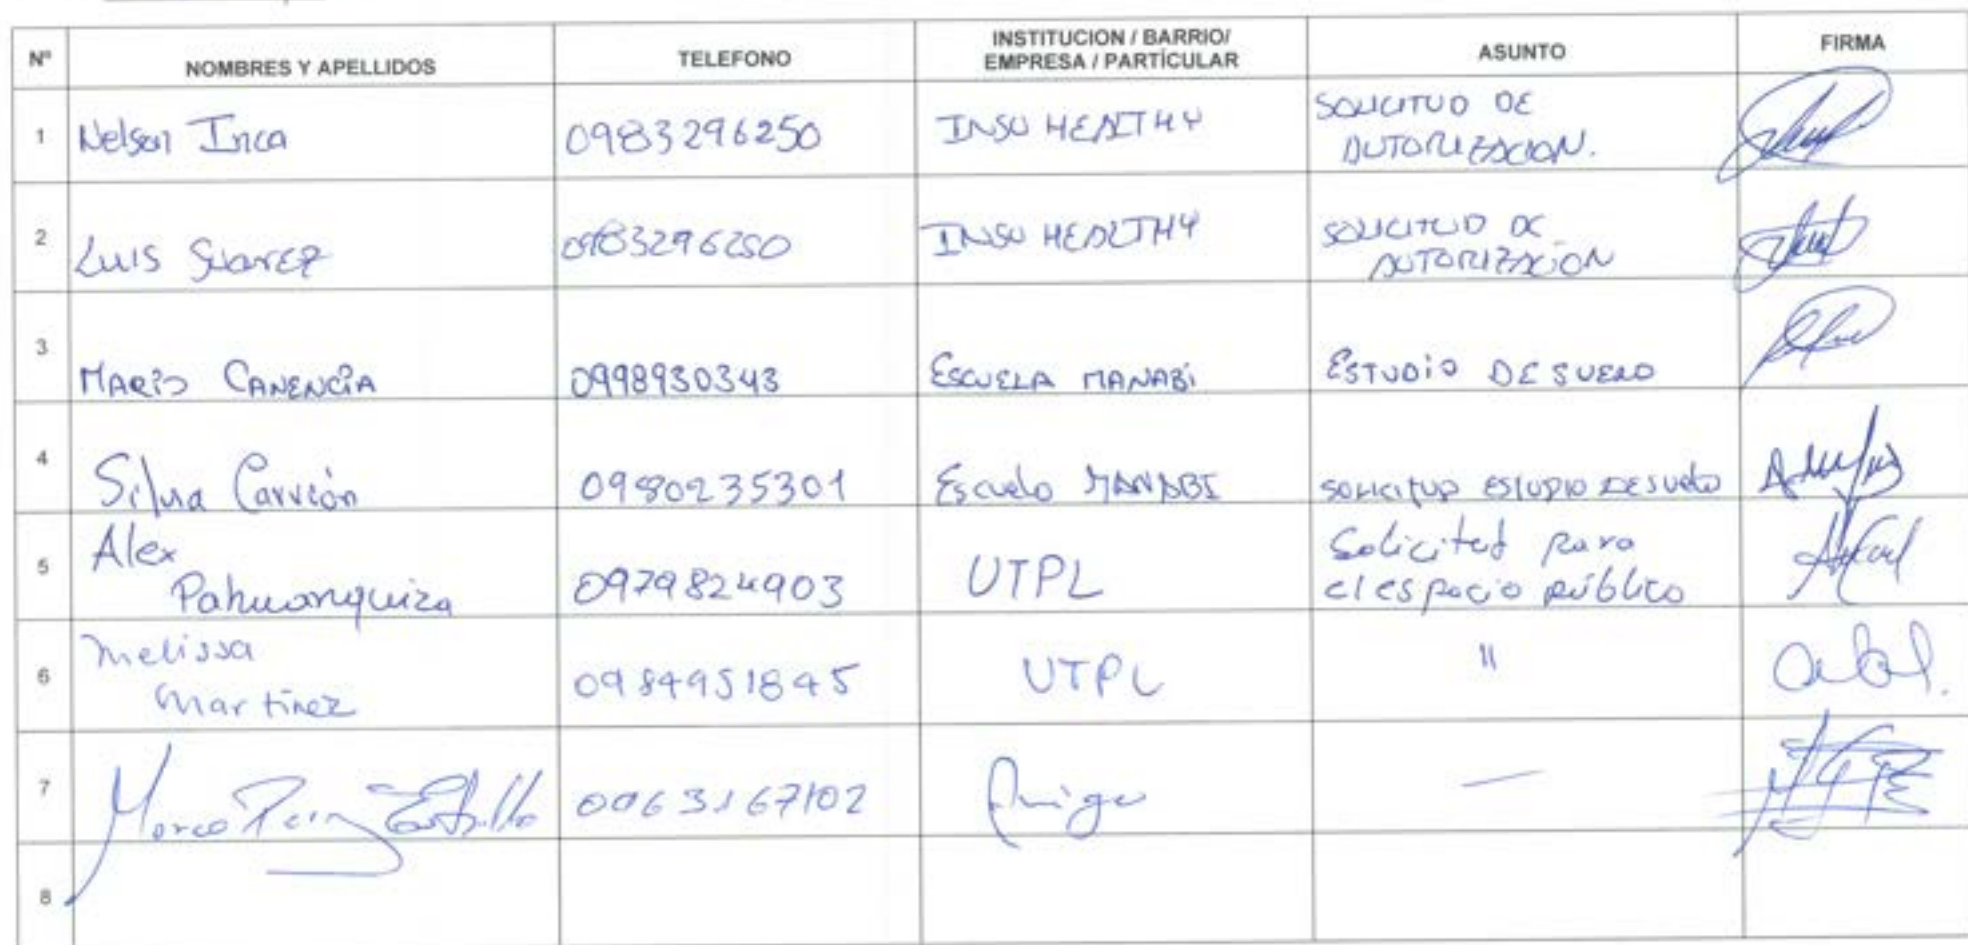 Nº NOMBRES Y APELLIDOS TELEFONO INSTITUCION / BARRIO/ EMPRESA / PARTÍCULAR ASUNTO FIRMA
1 Nelson Inca 0983296250 INSU HEALTHY SOLICITUD DE
AUTORIZACION.
2 Luis Suarez 0983296250 INSU HEALTHY SOLICITUD DE
AUTORIZACION
3 MARIO CANENCIA 0998930343 ESCUELA MANABI ESTUDIO DE SUELO
4 Silvia Carrión 0980235301 Escuela MANABI SOLICITUD ESTUDIO DE SUELO
5 Alex
Pahuanquiza 0979824903 UTPL Solicitud para
el espacio público
6 Melissa
Martinez 0984951845 UTPL "
7 Marco 0963167102 —
8